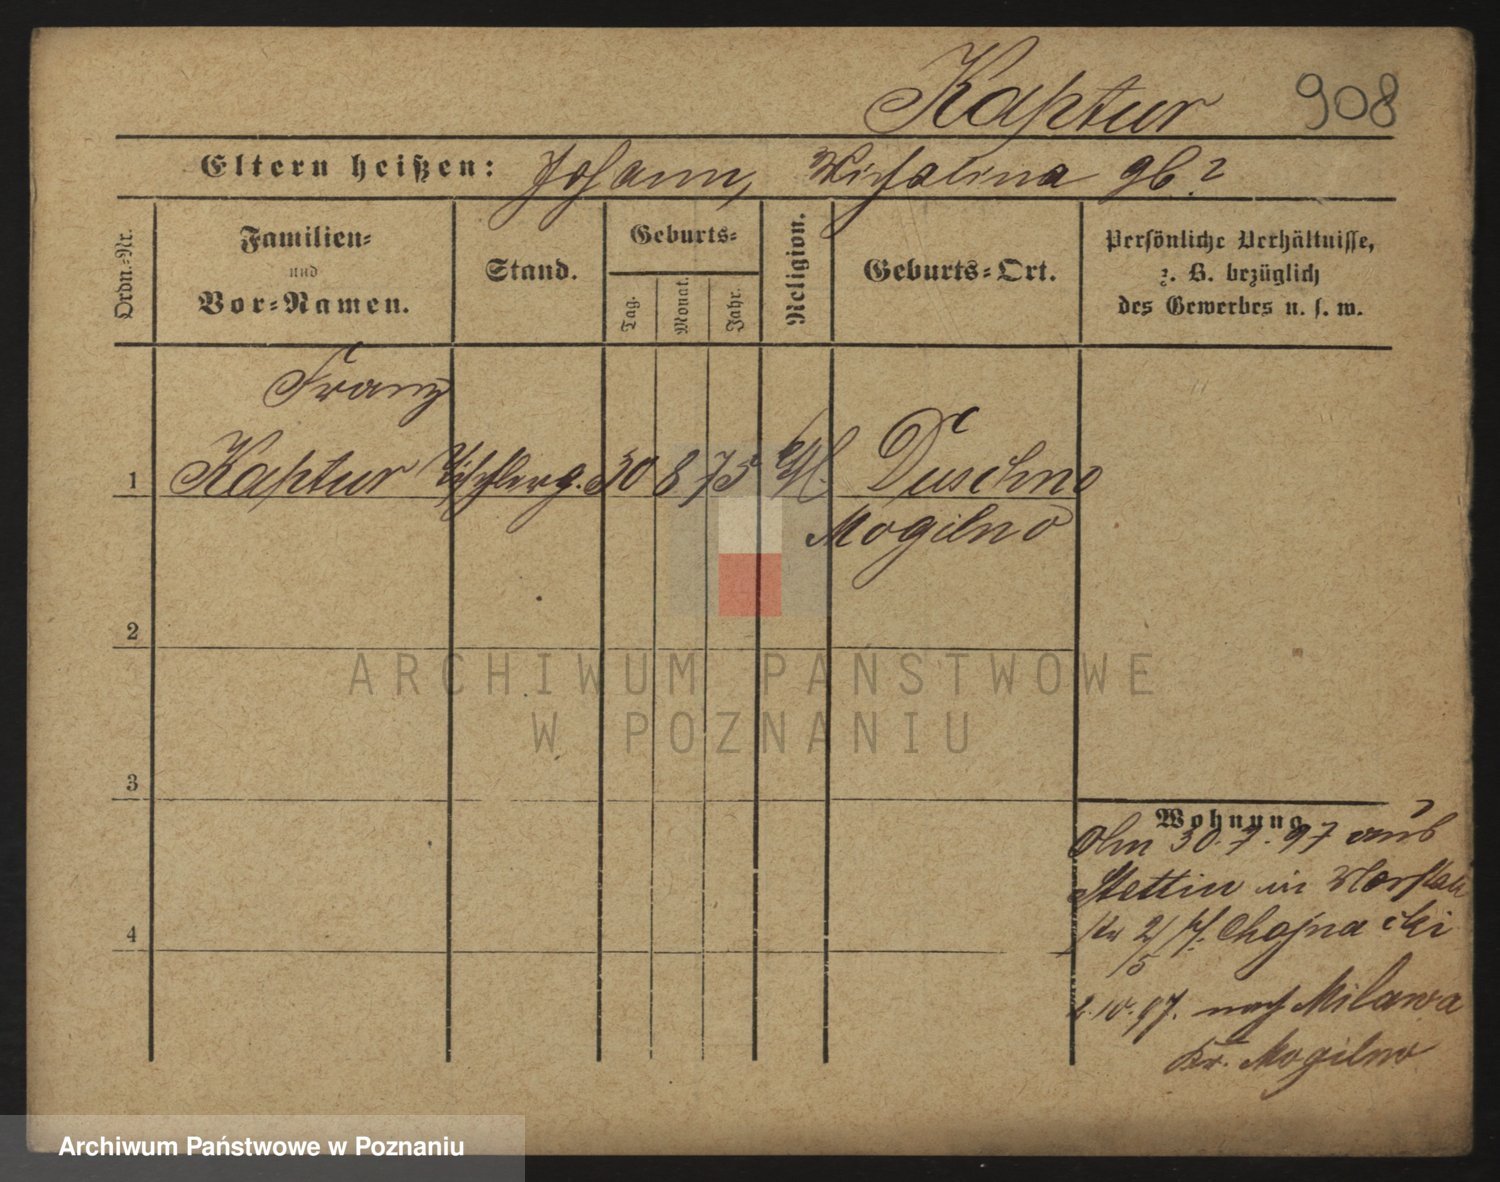 Kaptur 908
Eltern heißen: Johann, Michalina gb. ?
Ordn.-Nr.
Familien-
und
Vor-Namen.
Stand.
Geburts-
Tag.
Monat.
Jahr.
Religion.
Geburts-Ort.
Persönliche Verhältnisse,
z. B. bezüglich
des Gewerbes u. s. w.
Franz
1 Kaptur Tischlerg. 30 8 75 Duschno
Mogilno
2
3
4
Wohnung
30.7.97 aus
Stettin in
2/5 Chojnacki
2.10.97. nach Milawa
Kr. Mogilno
ARCHIWUM PAŃSTWOWE
W POZNANIU
Archiwum Państwowe w Poznaniu